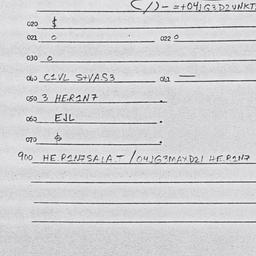 (/)-=+04JG3D2VNKT
020 $
021 0 022 0
030 0
040 C1VL S+VAS3 041 —
050 3 HER1N7
060 EJL .
070 $ .
900 HE.R1N7SAIA-/04JG3MAYD21 HER1N7